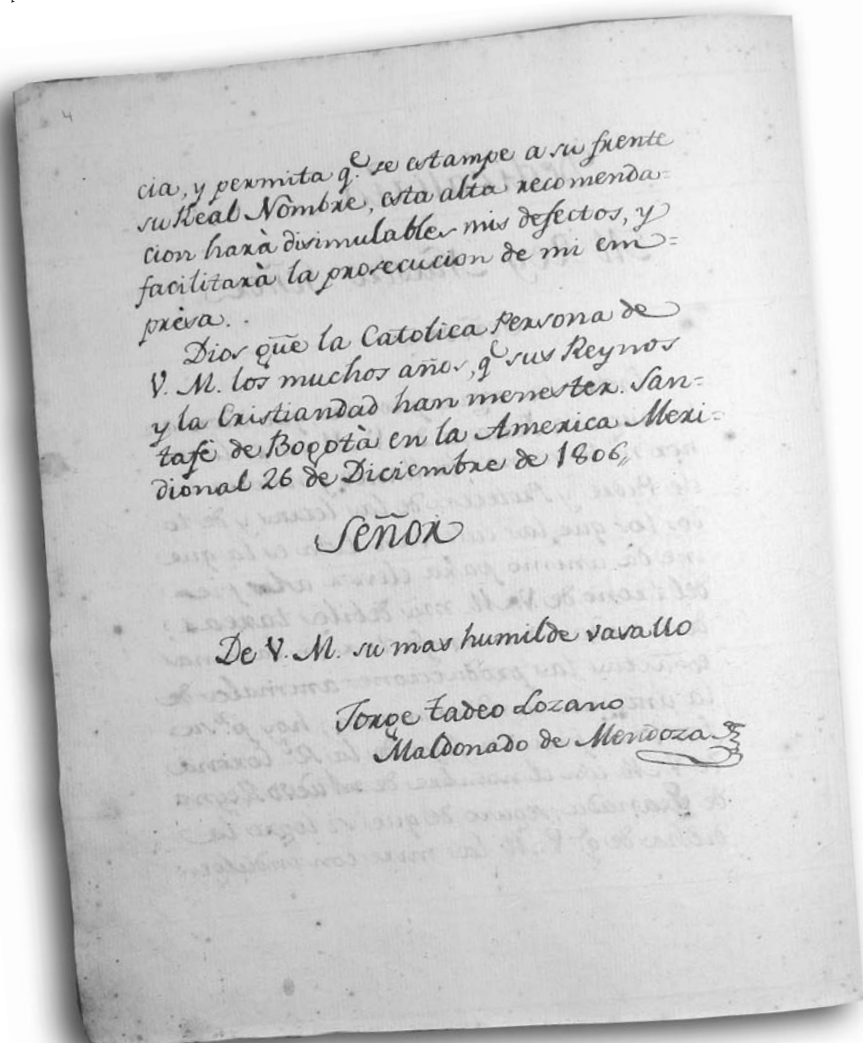 4
cia, y permita q.e se estampe a su frente
su Real Nombre, esta alta recomenda=
cion harà disimulables mis defectos, y
facilitarà la prosecucion de mi em=
presa.
Dios gũe la Catolica Persona de
V. M. los muchos años, q.e sus Reynos
y la Cristiandad han menester. San=
tafè de Bogotà en la America Meri=
dional 26 de Diciembre de 1806,,
Señor
De V. M. su mas humilde vasallo
Jorge Tadeo Lozano
Maldonado de Mendoza